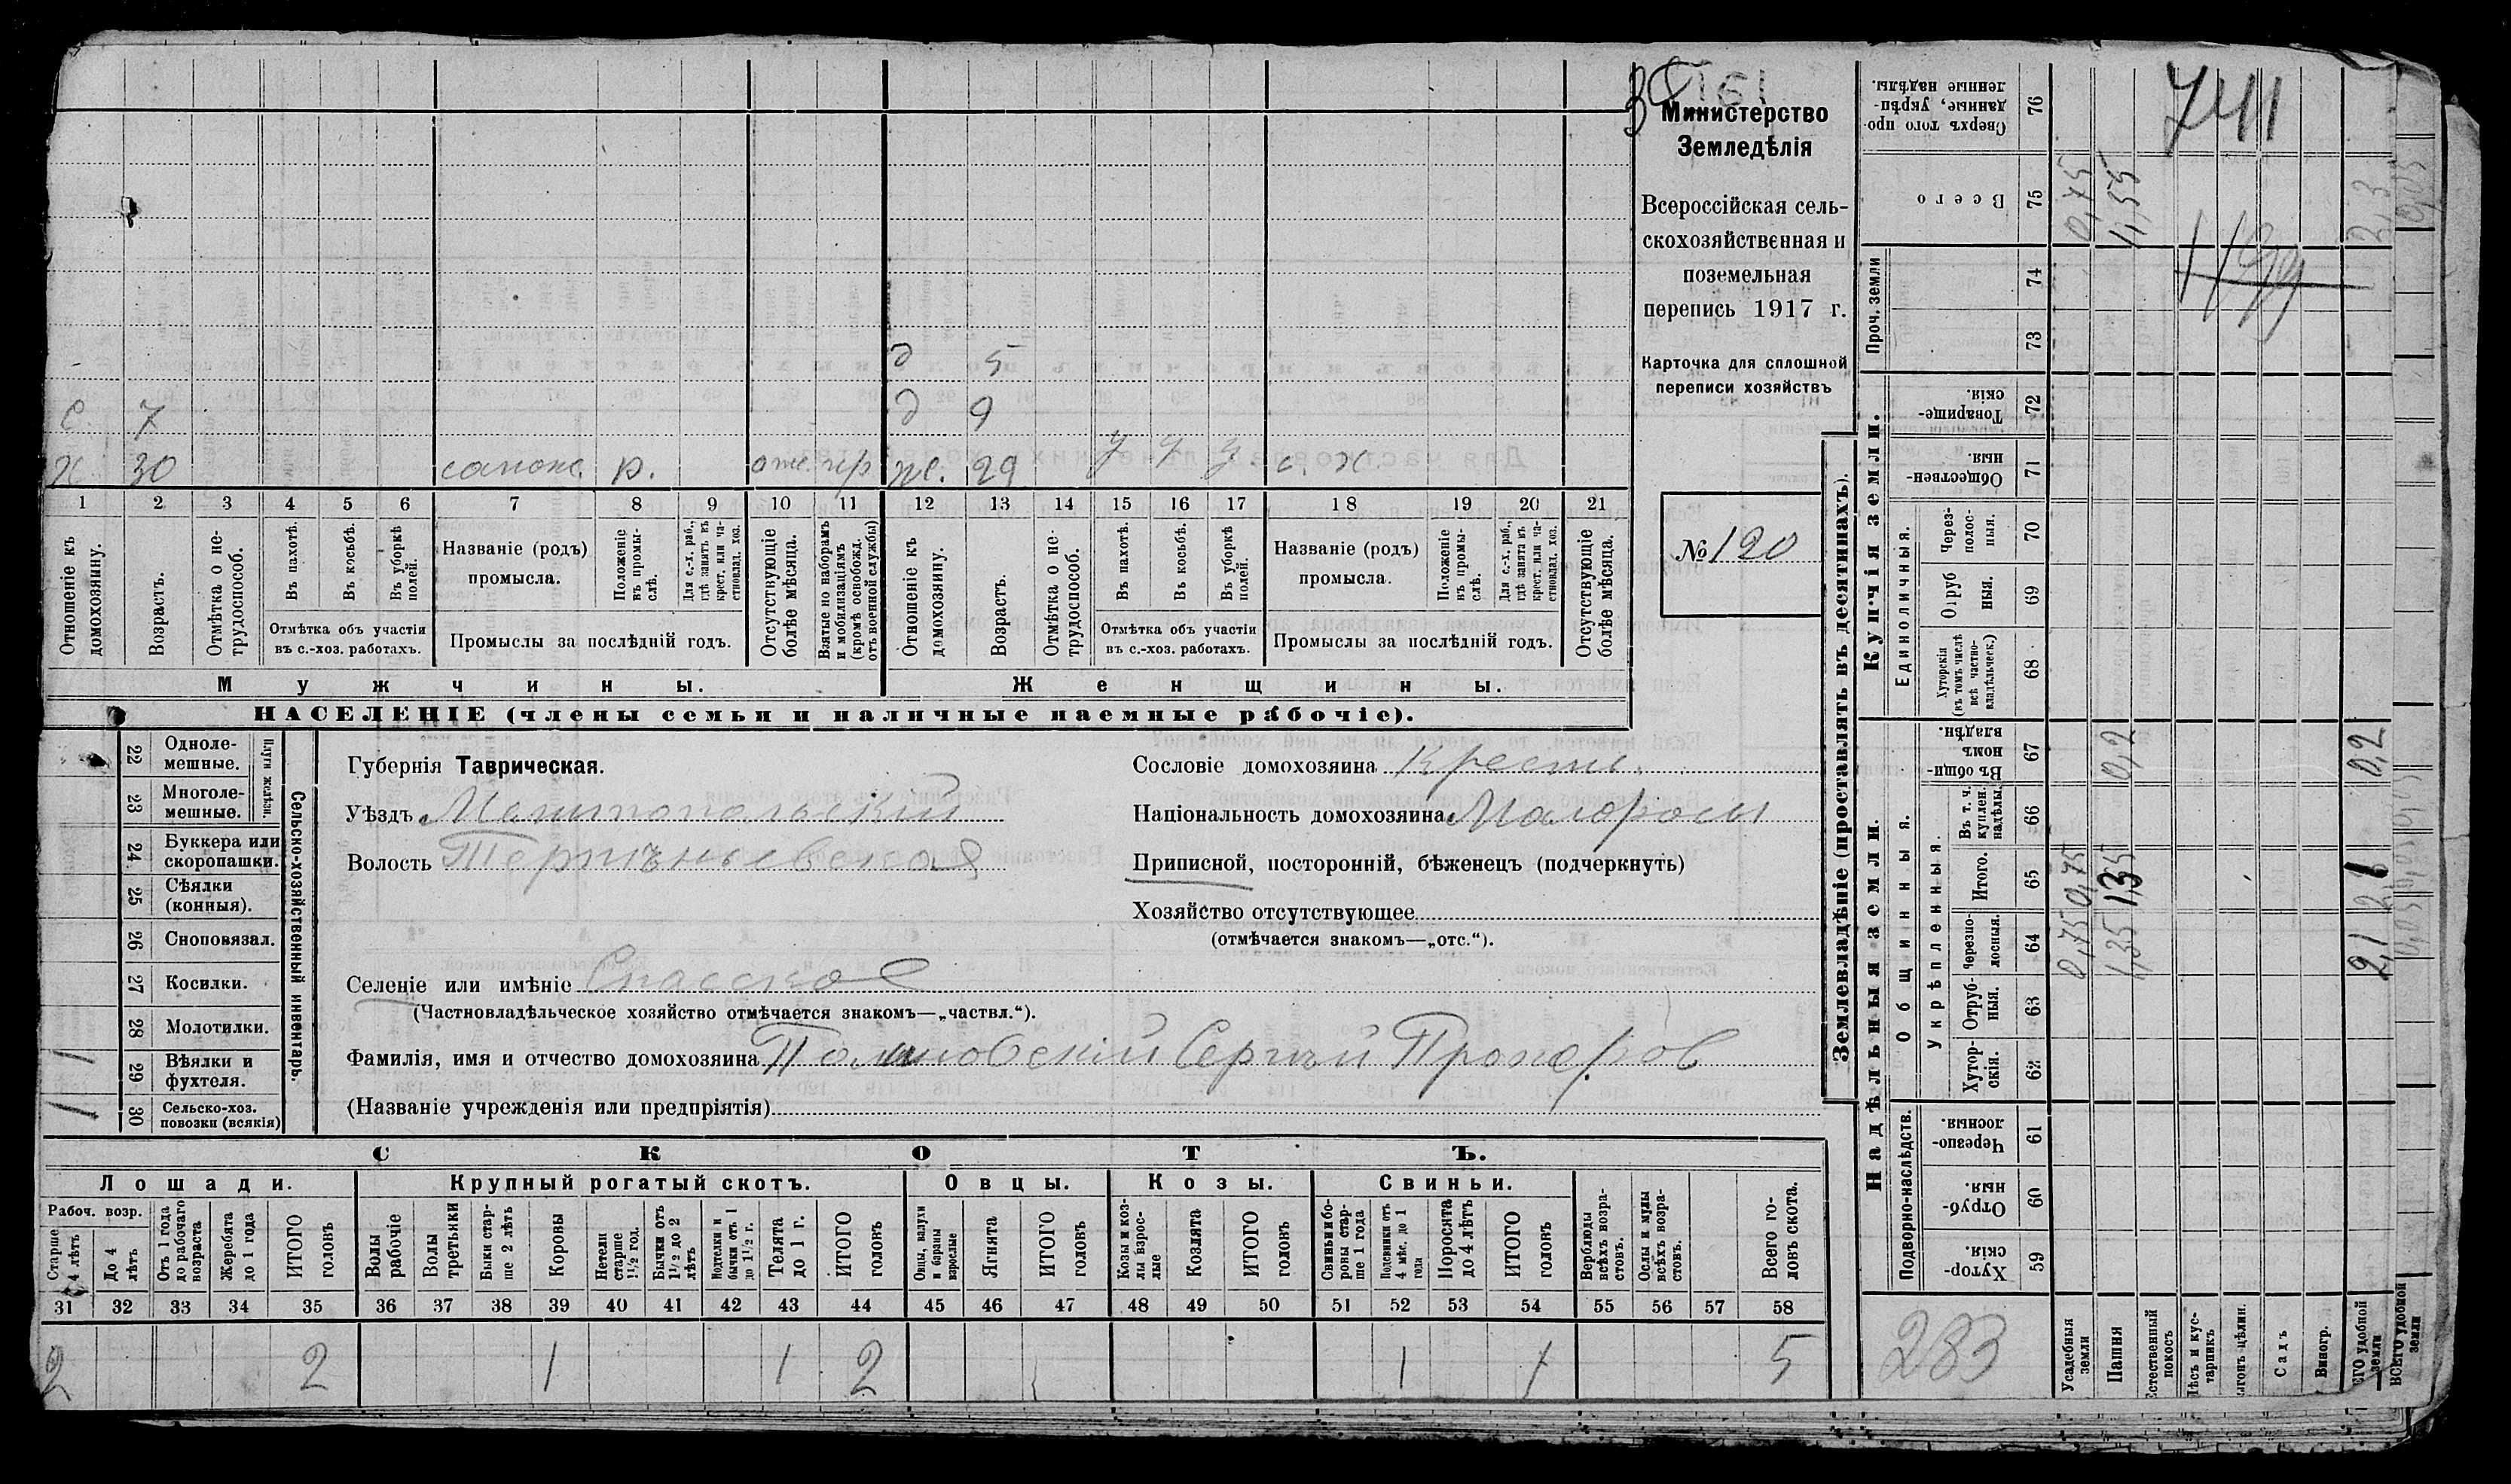 Министерство
Земледѣлія
Всероссійская сель-
скохозяйственная и
поземельная
перепись 1917 г.
Карточка для сплошной
переписи хозяйствъ
№ 120
д 5
с. 7 д 9
х 30 р. же. 29 с. х.
1 2 3 4 5 6 7 8 9 10 11 12 13 14 15 16 17 18 19 20 21
Отношеніе къ домохозяину.
Возрастъ.
Отмѣтка о не-трудоспособ.
Въ пахотѣ.
Въ косьбѣ.
Въ уборкѣ полей.
Отмѣтка объ участіи
въ с.-хоз. работахъ.
Названіе (родъ)
промысла.
Положеніе въ промы-слѣ.
Для с.-х. раб., гдѣ занятъ въ крест. или ча-стновлад. хоз.
Промыслы за послѣдній годъ.
Отсутствующіе болѣе мѣсяца.
Взятые по наборамъ и мобилизаціямъ (кромѣ освобожд. отъ военной службы)
Отношеніе къ домохозяину.
Возрастъ.
Отмѣтка о не-трудоспособ.
Въ пахотѣ.
Въ косьбѣ.
Въ уборкѣ полей.
Отмѣтка объ участіи
въ с.-хоз. работахъ.
Названіе (родъ)
промысла.
Положеніе въ промы-слѣ.
Для с.-х. раб., гдѣ занята въ крест. или ча-стновлад. хоз.
Промыслы за послѣдній годъ.
Отсутствующіе болѣе мѣсяца.
Мужчины. Женщины.
НАСЕЛЕНІЕ (члены семьи и наличные наемные рабочіе).
22 Одноле-мешные.
23 Многоле-мешные.
Плуги желѣзн.
24 Буккера или скоропашки.
25 Сѣялки (конныя).
26 Сноповязал.
27 Косилки.
28 Молотилки.
29 Вѣялки и фухтеля. 1
30 Сельско-хоз. повозки (всякія) 1
Сельско-хозяйственный инвентарь.
Губернія Таврическая.
Уѣздъ Мелитопольскій
Волость
Селеніе или имѣніе Спасское
(Частновладѣльческое хозяйство отмѣчается знакомъ—„частвл.“).
Фамилія, имя и отчество домохозяина Сергѣй
(Названіе учрежденія или предпріятія)
Сословіе домохозяина Крестъ.
Національность домохозяина Малороссъ
Приписной, посторонній, бѣженецъ (подчеркнуть)
Хозяйство отсутствующее
(отмѣчается знакомъ—„отс.“).
СКОТЪ.
Лошади. Крупный рогатый скотъ. Овцы. Козы. Свиньи.
Рабоч. возр.
Старше 4 лѣтъ
До 4 лѣтъ
Отъ 1 года до рабочаго возраста
Жеребята до 1 года
ИТОГО головъ
Волы рабочіе
Волы третьяки
Быки стар-ше 2 лѣтъ
Коровы
Нетели старше 1½ год.
Бычки отъ 1½ до 2 лѣтъ
Подтелки и бычки отъ 1 до 1½ г.
Телята до 1 г.
ИТОГО головъ
Овцы, валухи и бараны взрослые
Ягнята
ИТОГО головъ
Козы и коз-лы взрос-лые
Козлята
ИТОГО головъ
Свиньи и бо-ровы стар-ше 1 года
Подсвинки отъ 4 мѣс. до 1 года
Поросята до 4 лѣтъ
ИТОГО головъ
Верблюды всѣхъ возра-стовъ.
Ослы и мулы всѣхъ возра-стовъ.
Всего го-ловъ скота.
31 32 33 34 35 36 37 38 39 40 41 42 43 44 45 46 47 48 49 50 51 52 53 54 55 56 57 58
2 2 1 1 2 1 1 5
Землевладѣніе (проставлять въ десятинахъ).
Надѣльныя земли. Купчія земли.
76 Сверхъ того про-данные, укрѣп-ленные надѣлы.
75 Всего 0,75 4,55 2,3
Проч. земли
74
73
72 Товарище-скія.
71 Обществен-ныя.
Единоличныя.
70 Через-полос-ныя.
69 Отруб ныя.
68 Хуторскія (въ томъ числѣ всѣ частно-владѣльческ.)
67 Въ общи-номъ владѣн. 0,2 0,2
Общинныя.
Укрѣпленныя.
66 Въ т. ч. куплен. надѣлы.
65 Итого. 0,75 1,35
64 Черезпо-лосныя. 0,75 1,35 2,1
63 Отруб-ныя.
62 Хутор-скія.
Подворно-наслѣдств.
61 Черезпо-лосныя.
60 Отруб-ныя.
59 Хутор-скія.
Усадебныя земли
Пашня
Естественный покосъ
Лѣсъ и кус-тарникъ
Садъ
Виногр.
ВСЕГО удобной земли
741
283